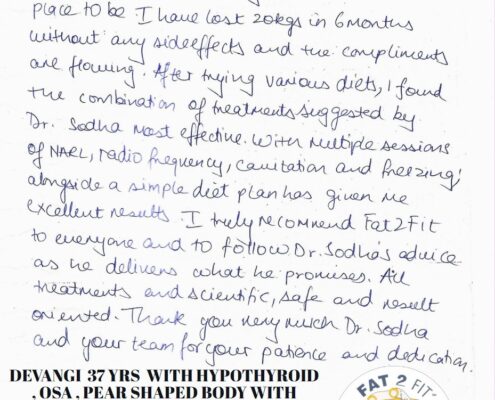 place to be. I have lost 20kgs in 6 months
without any sideeffects and the compliments
are flowing. After trying various diets, I found
the combination of treatments suggested by
Dr. Sodha most effective. With multiple sessions
of NARL, radio frequency, cavitation and freezing;
alongside a simple diet plan has given me
excellent results. I truly recommend Fat2Fit
to everyone and to follow Dr. Sodha's advice
as he delivers what he promises. All
treatments and scientific, safe and result
oriented. Thank you very much Dr. Sodha
and your team for your patience and dedication.
DEVANGI 37 YRS WITH HYPOTHYROID
, OSA , PEAR SHAPED BODY WITH
FAT 2 FIT